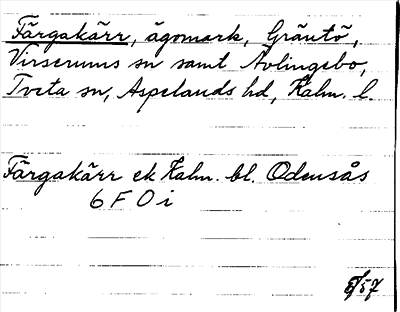 Färgakärr, ägomark, Gräntö,
Virserums sn samt Avlingebo,
Tveta sn, Aspelands hd, Kalm. l.
Färgakärr ek Kalm. bl. Odensås
6 F 0 i
57